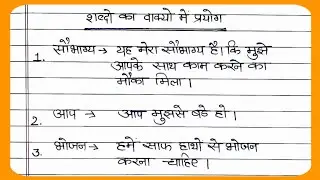 शब्दो का वाक्यो में प्रयोग
1. सौभाग्य → यह मेरा सौभाग्य है। कि मुझे
आपके साथ काम करने का
मौका मिला।
2. आप → आप मुझसे बडे हो।
3. भोजन → हमें साफ हाथो से भोजन
करना चाहिए।